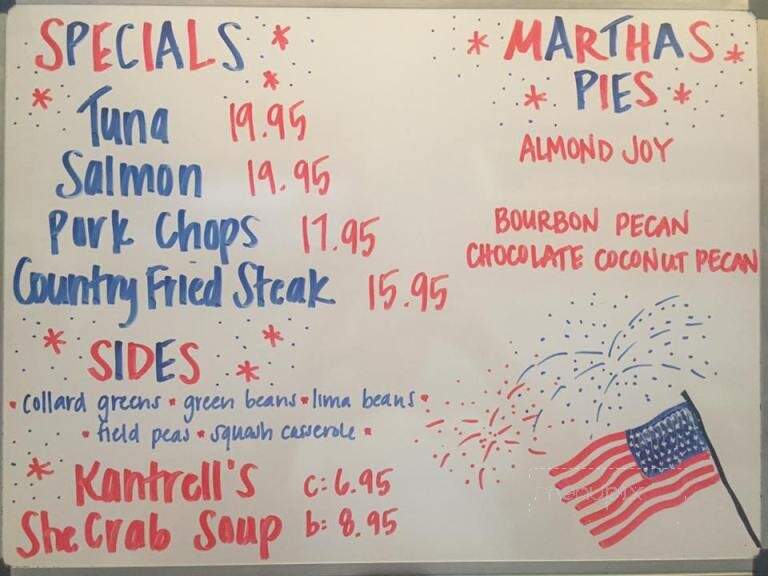 SPECIALS
Tuna 19.95
Salmon 19.95
Pork Chops 17.95
Country Fried Steak 15.95
SIDES
collard greens * green beans * lima beans
field peas * squash casserole
Kantrell's c: 6.95
She Crab Soup b: 8.95
MARTHAS
PIES
ALMOND JOY
BOURBON PECAN
CHOCOLATE COCONUT PECAN
menupix